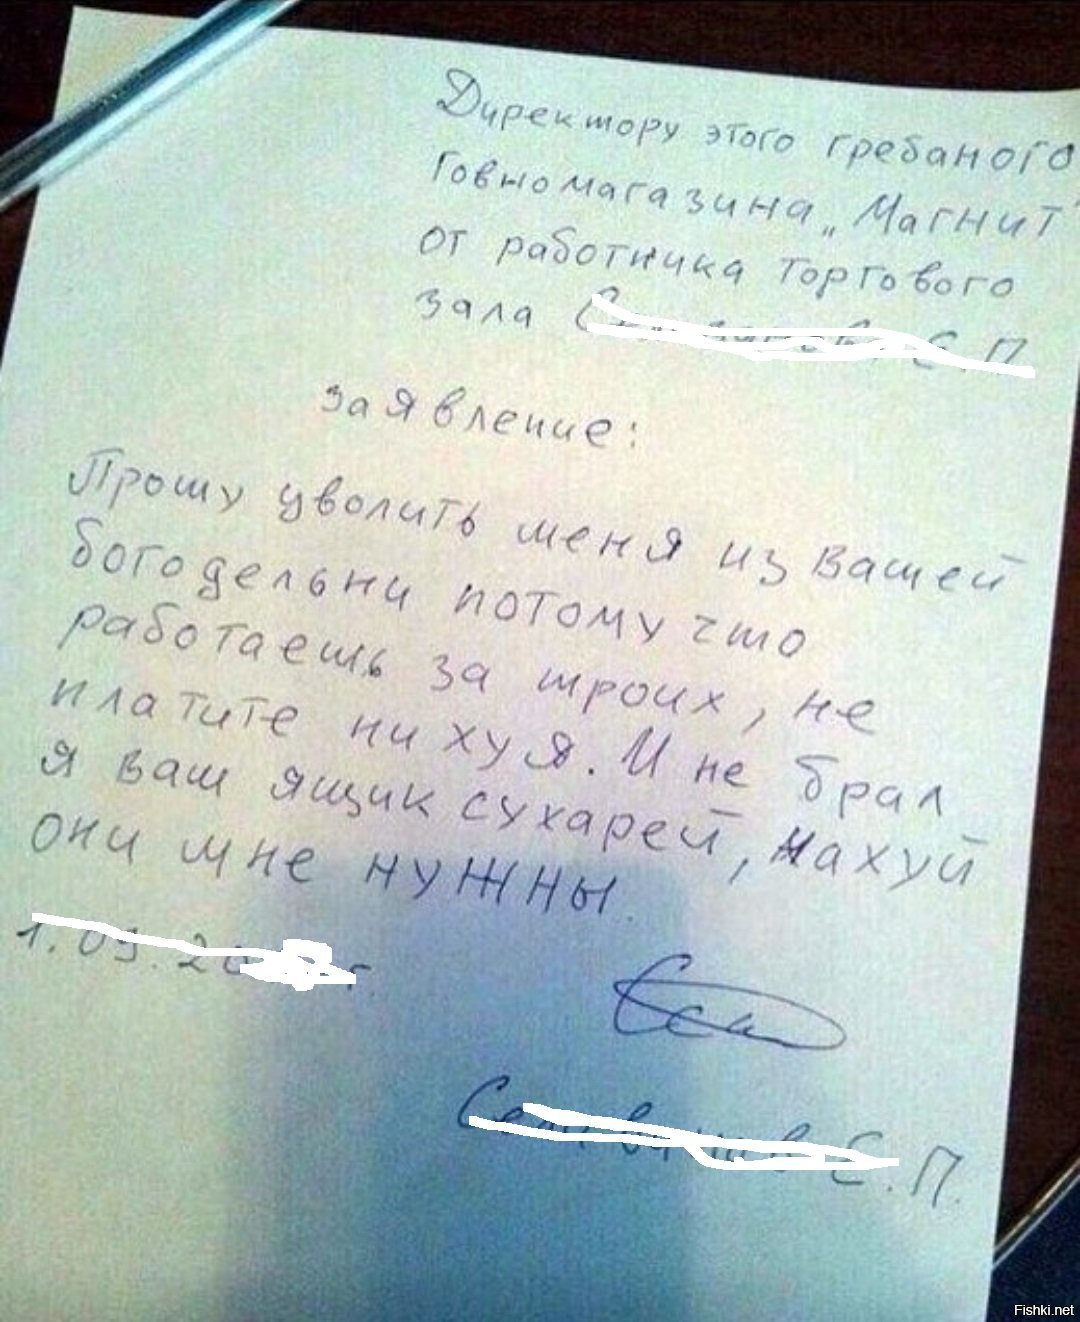 Директору этого гребаного
Говномагазина „Магнит"
от работника торгового
зала С.П.
заявление:
Прошу уволить меня из вашей
богодельни потому что
работаешь за троих, не
платите нихуя. И не брал
я ваш ящик сухарей, нахуй
они мне нужны.
1.09.20 г.
С.П.
Fishki.net